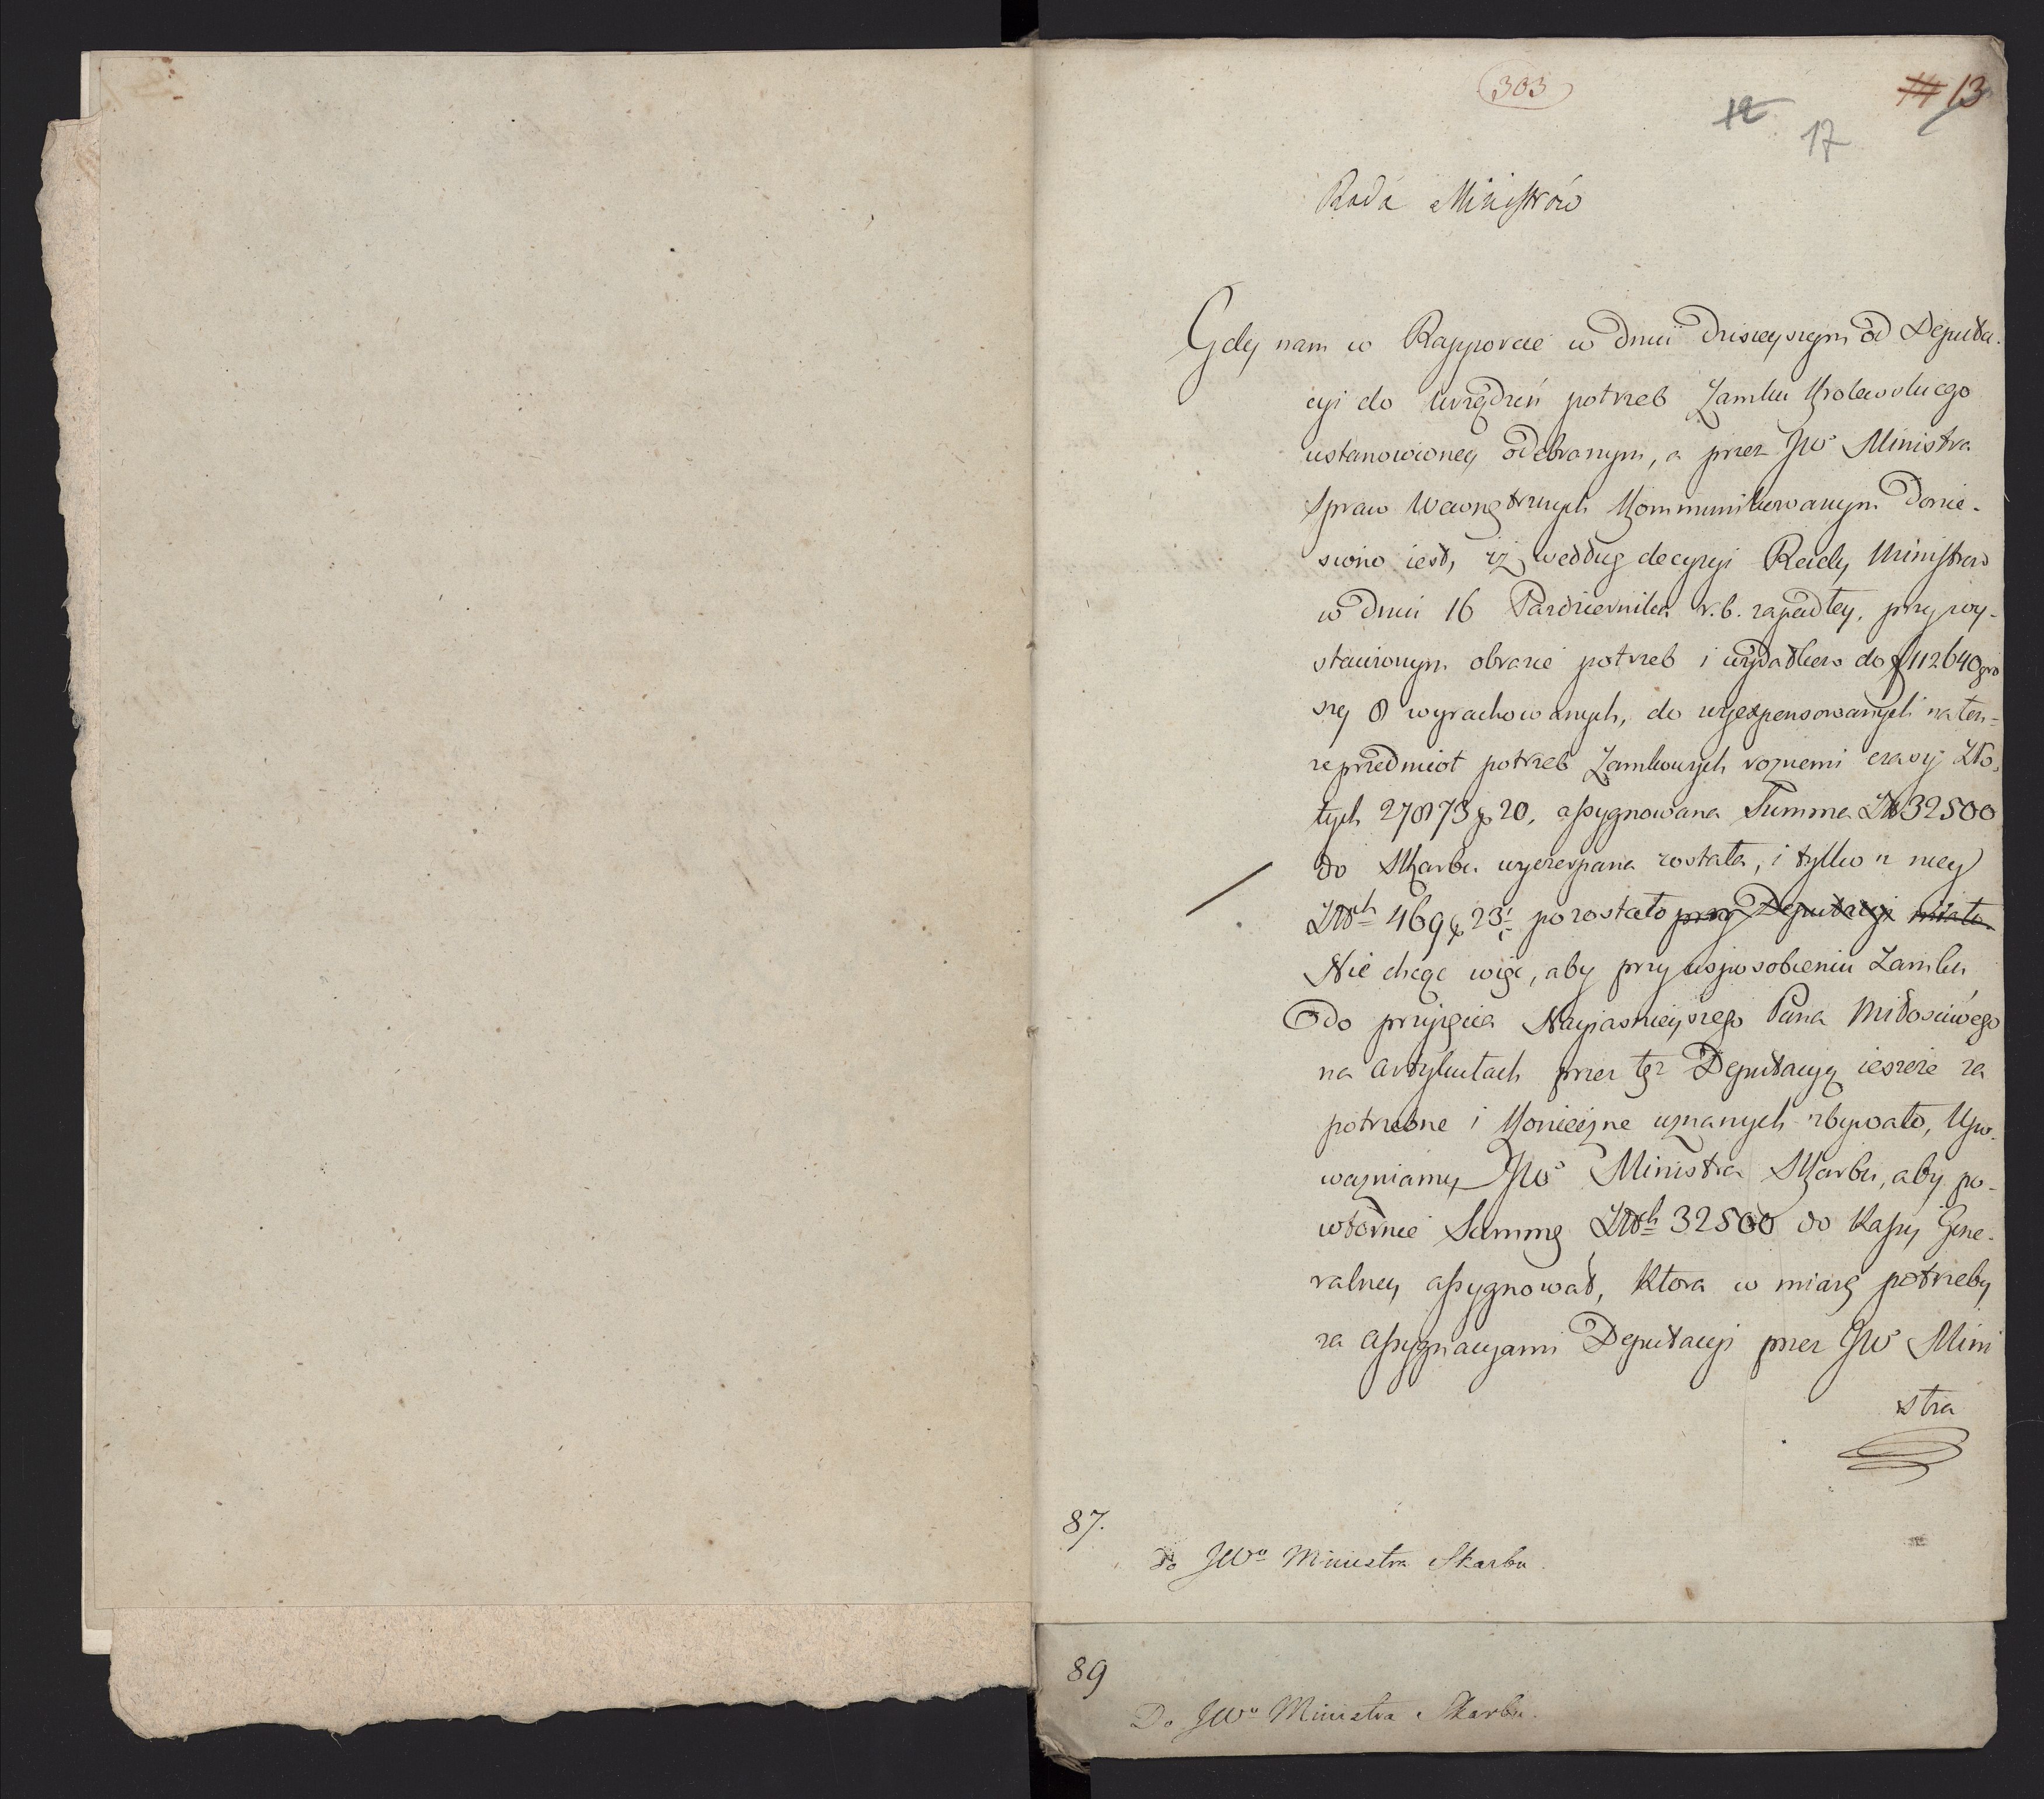 303
11 13
12
17
Rada Ministrów
Gdy nam w Rapporcie w dniu dzisieyszym od Deputa-
cyi do urządzeń potrzeb Zamku Krolewskiego
ustanowioney odebranym, a przez JW° Ministra
Spraw Wewnętrznych kommunikowanym donie-
siono iest, iż według decyzyi Rady Ministrow
w dniu 16 Pazdziernika r. b. zapadłey, przy wy-
stawionym obrazie potrzeb i wydatkow do f 112640 gro
szy 8 wyrachowanych, do wyexpensowanych na ten-
że przedmiot potrzeb Zamkowych roznemi czasy Zło-
tych 27873 g 20, assygnowana Summa Zł 32500
do Skarbu wyczerpana została, i tylko z niey
Złtch 469 g 23 pozostało przy Deputacyi miało
Nie chcąc więc, aby przy usposobieniu Zamku
do przyięcia Nayiasnieyszego Pana Miłosciwego
na artykułach przez tęż Deputacyą ieszcze za
potrzebne i konieczne uznanych zbywało, Upo-
wazniamy JW° Ministra Skarbu, aby po-
wtórnie Summę Złtch 32500 do Kassy Gene-
ralney assygnował, ktora w miarę potrzeby
za assygnacyami Deputacyi przez JW° Mini
stra
87.
Do JW° Ministra Skarbu.
89
Do JW° Ministra Skarbu.